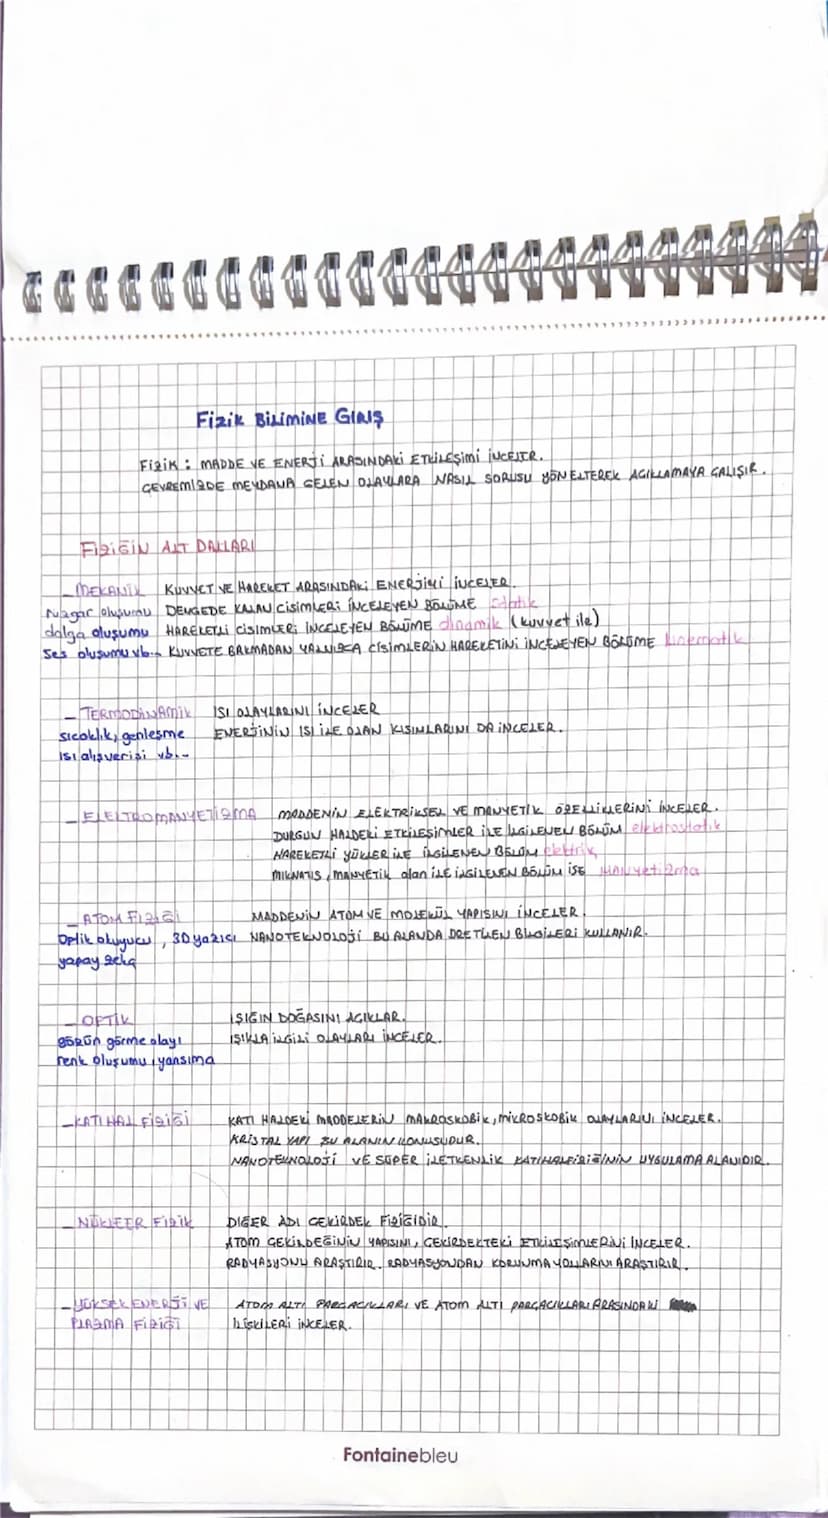 Fizik BİLİMİNE GİRİŞ
Fizik : MADDE VE ENERJİ ARASINDAKİ ETKİLEŞİMİ İNCELER.
ÇEVREMİZDE MEYDANA GELEN OLAYLARA NASIL SORUSU YÖNELTEREK AÇIKLAMAYA ÇALIŞIR.
FİZİĞİN ALT DALLARI
_ MEKANİK KUVVET VE HAREKET ARASINDAKİ ENERJİYİ İNCELER.
rüzgar oluşumu DENGEDE KALAN CİSİMLERİ İNCELEYEN BÖLÜME statik
dalga oluşumu HAREKETLİ CİSİMLERİ İNCELEYEN BÖLÜME dinamik (kuvvet ile)
Ses oluşumu vb... KUVVETE BAKMADAN YALNIZCA CİSİMLERİN HAREKETİNİ İNCELEYEN BÖLÜME kinematik
_ TERMODİNAMİK ISI OLAYLARINI İNCELER
sıcaklık, genleşme ENERJİNİN ISI İLE OLAN KISIMLARINI DA İNCELER.
ısı alışverişi vb...
_ ELEKTROMANYETİZMA MADDENİN ELEKTRİKSEL VE MANYETİK ÖZELLİKLERİNİ İNCELER.
DURGUN HALDEKİ ETKİLEŞİMLER İLE İLGİLENEN BÖLÜM elektrostatik
HAREKETLİ YÜKLER İLE İLGİLENEN BÖLÜM elektrik,
MIKNATIS, MANYETİK alan İLE İLGİLENEN BÖLÜM İSE Manyetizma
_ ATOM FİZİĞİ MADDENİN ATOM VE MOLEKÜL YAPISINI İNCELER.
Optik okuyucu, 3D yazıcı NANOTEKNOLOJİ BU ALANDA ÜRETİLEN BİLGİLERİ KULLANIR.
yapay zeka
_ OPTİK IŞIĞIN DOĞASINI AÇIKLAR.
gözün görme olayı IŞIKLA İLGİLİ OLAYLARI İNCELER.
renk oluşumu, yansıma
_ KATI HAL FİZİĞİ KATI HALDEKİ MADDELERİN MAKROSKOBİK, MİKROSKOBİK OLAYLARINI İNCELER.
KRİSTAL YAPI BU ALANIN KONUSUDUR.
NANOTEKNOLOJİ VE SÜPER İLETKENLİK KATIHALFİZİĞİNİN UYGULAMA ALANIDIR.
_ NÜKLEER FİZİK DİĞER ADI ÇEKİRDEK FİZİĞİDİR.
ATOM ÇEKİRDEĞİNİN YAPISINI, ÇEKİRDEKTEKİ ETKİLEŞİMLERİNİ İNCELER.
RADYASYONU ARAŞTIRIR. RADYASYONDAN KORUNMA YOLLARINI ARAŞTIRIR.
_ YÜKSEK ENERJİ VE ATOM ALTI PARÇACIKLARI VE ATOM ALTI PARÇACIKLARI ARASINDAKİ
PLAZMA FİZİĞİ İLİŞKİLERİ İNCELER.
Fontainebleu